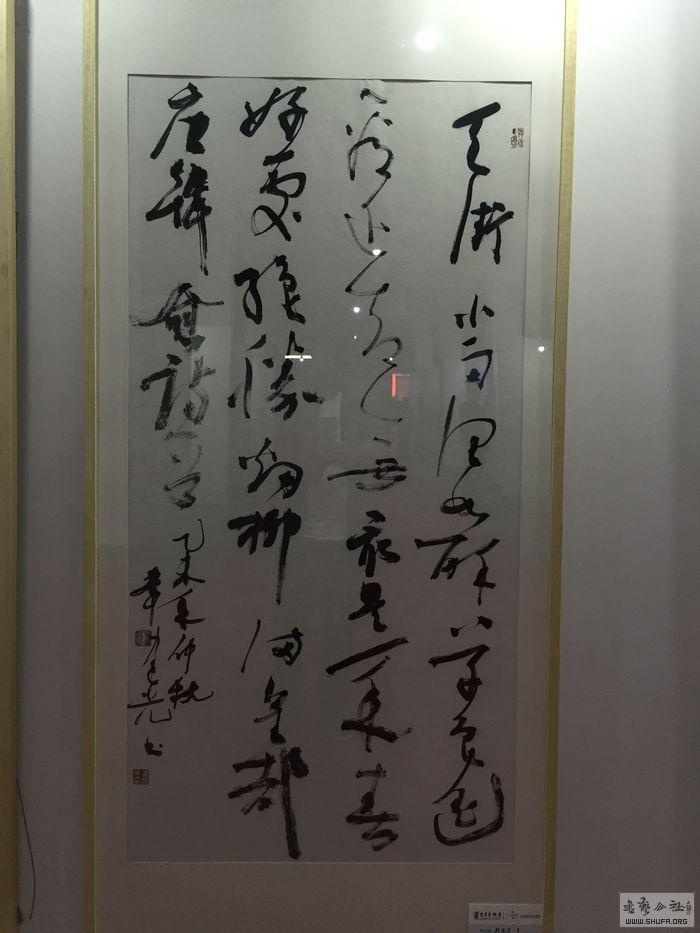 天街小雨润如酥草色遥
看近却无最是一年春
好处绝胜烟柳满皇都
唐韩愈诗一首 乙未年仲秋
光书
书艺公社
WWW.SHUFA.ORG